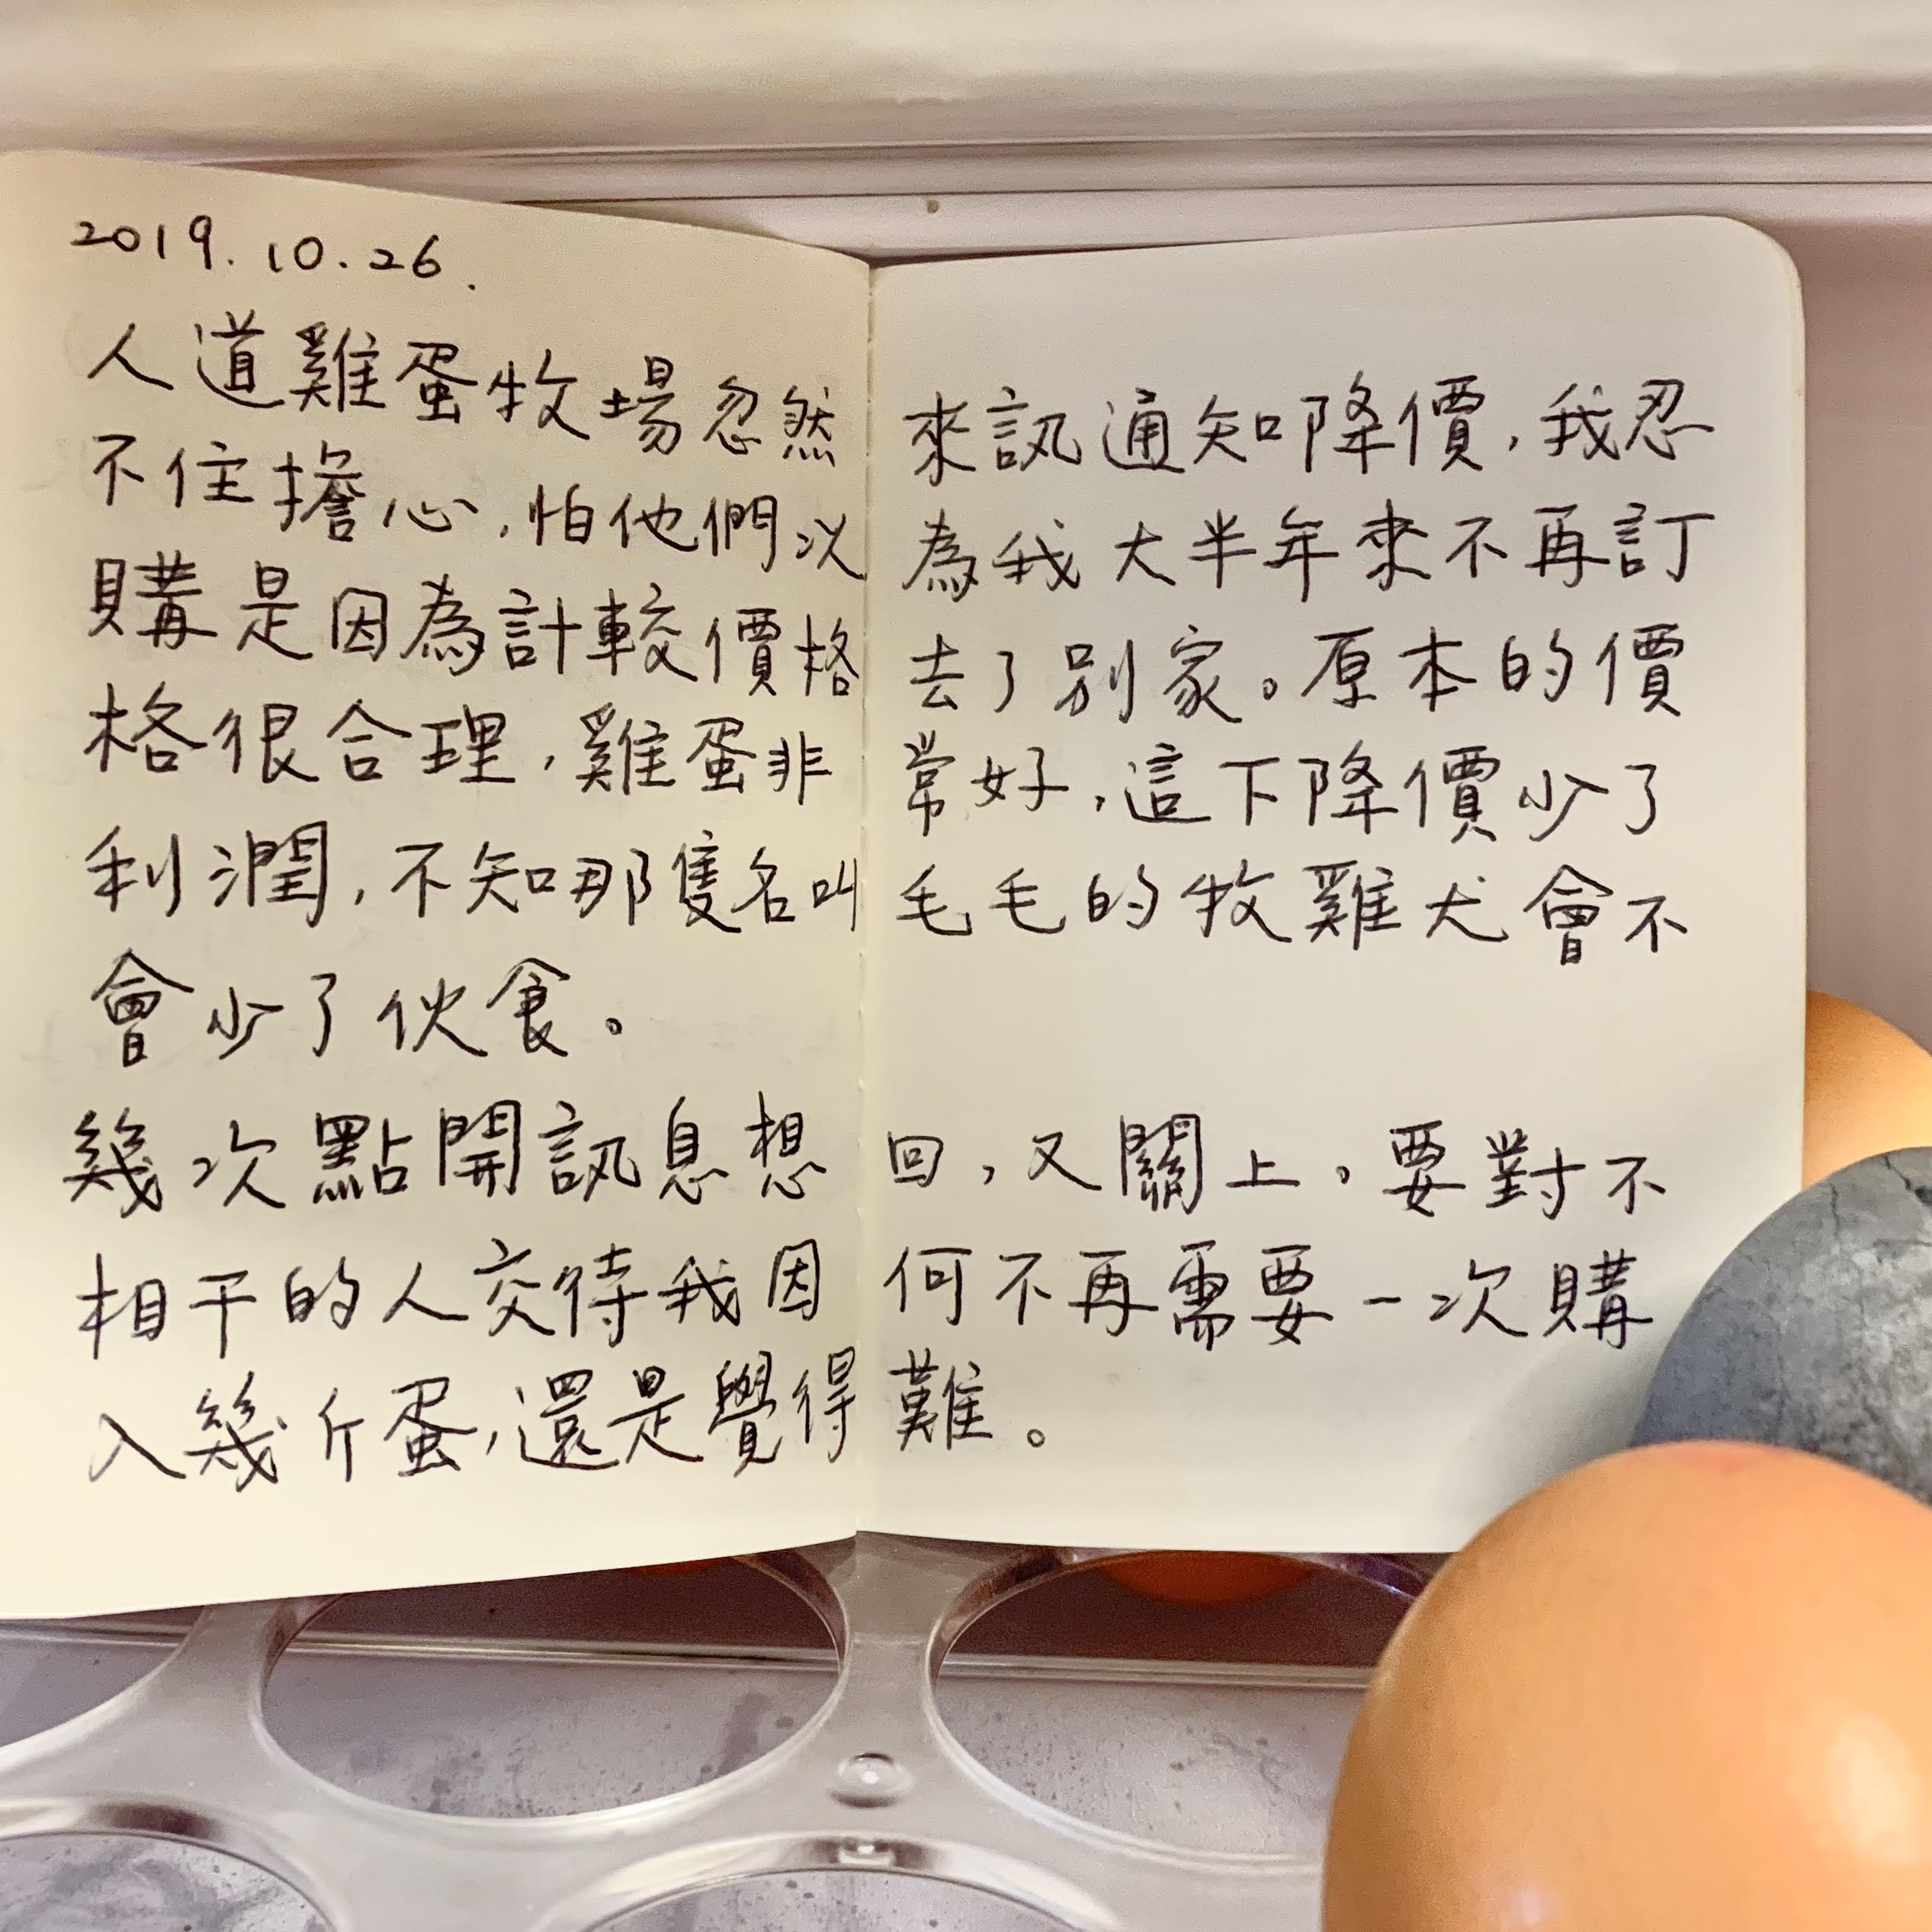 2019.10.26.
人道雞蛋牧場忽然來訊通知降價,我忍
不住擔心,怕他們以為我大半年來不再訂
購是因為計較價格去了別家。原本的價
格很合理,雞蛋非常好,這下降價少了
利潤,不知那隻名叫毛毛的牧雞犬會不
會少了伙食。
幾次點開訊息想回,又關上。要對不
相干的人交待我因何不再需要一次購
入幾斤蛋,還是覺得難。